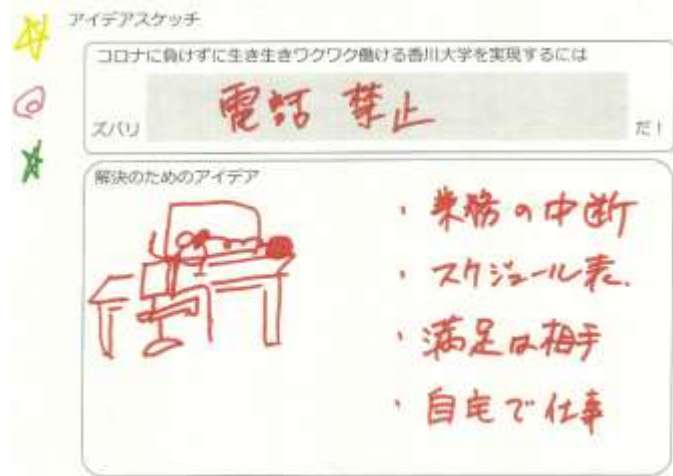 アイデアスケッチ
コロナに負けずに生き生きワクワク働ける香川大学を実現するには
ズバリ 電話 禁止 だ!
解決のためのアイデア
・業務の中断
・スケジュール表.
・満足は相手
・自宅で仕事